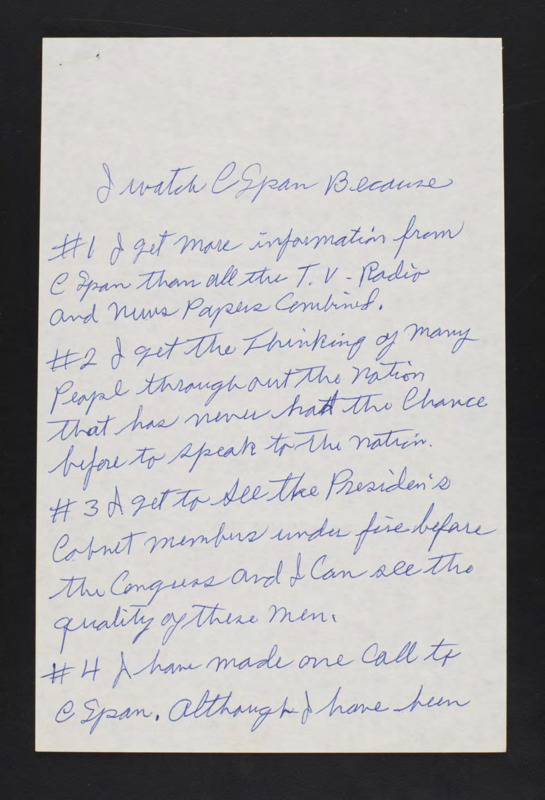 I watch C Span Because
#1 I get more information from
C Span than all the T.V - Radio
and News Papers Combined.
#2 I get the Thinking of many
Peopl through out the nation
that has never had the Chance
before to speak to the nation.
#3 I get to see the Presiden's
Cabnet members under fire before
the Congress and I Can see the
quality of these men.
#4 I have made one Call to
C Span. Although I have been